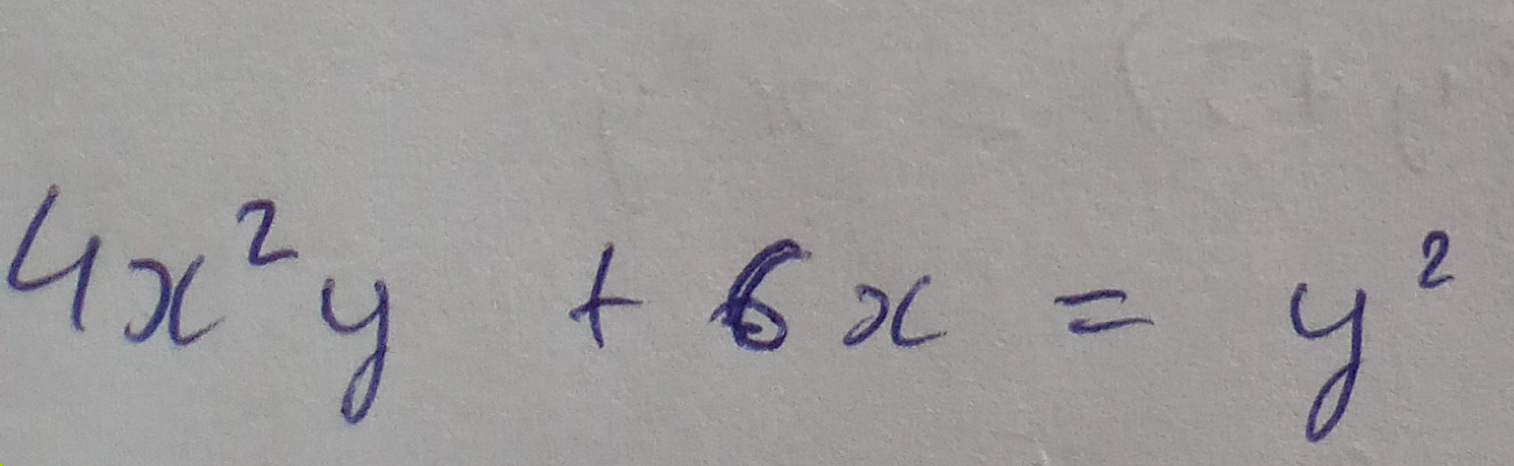 4x²y + 6x = y²